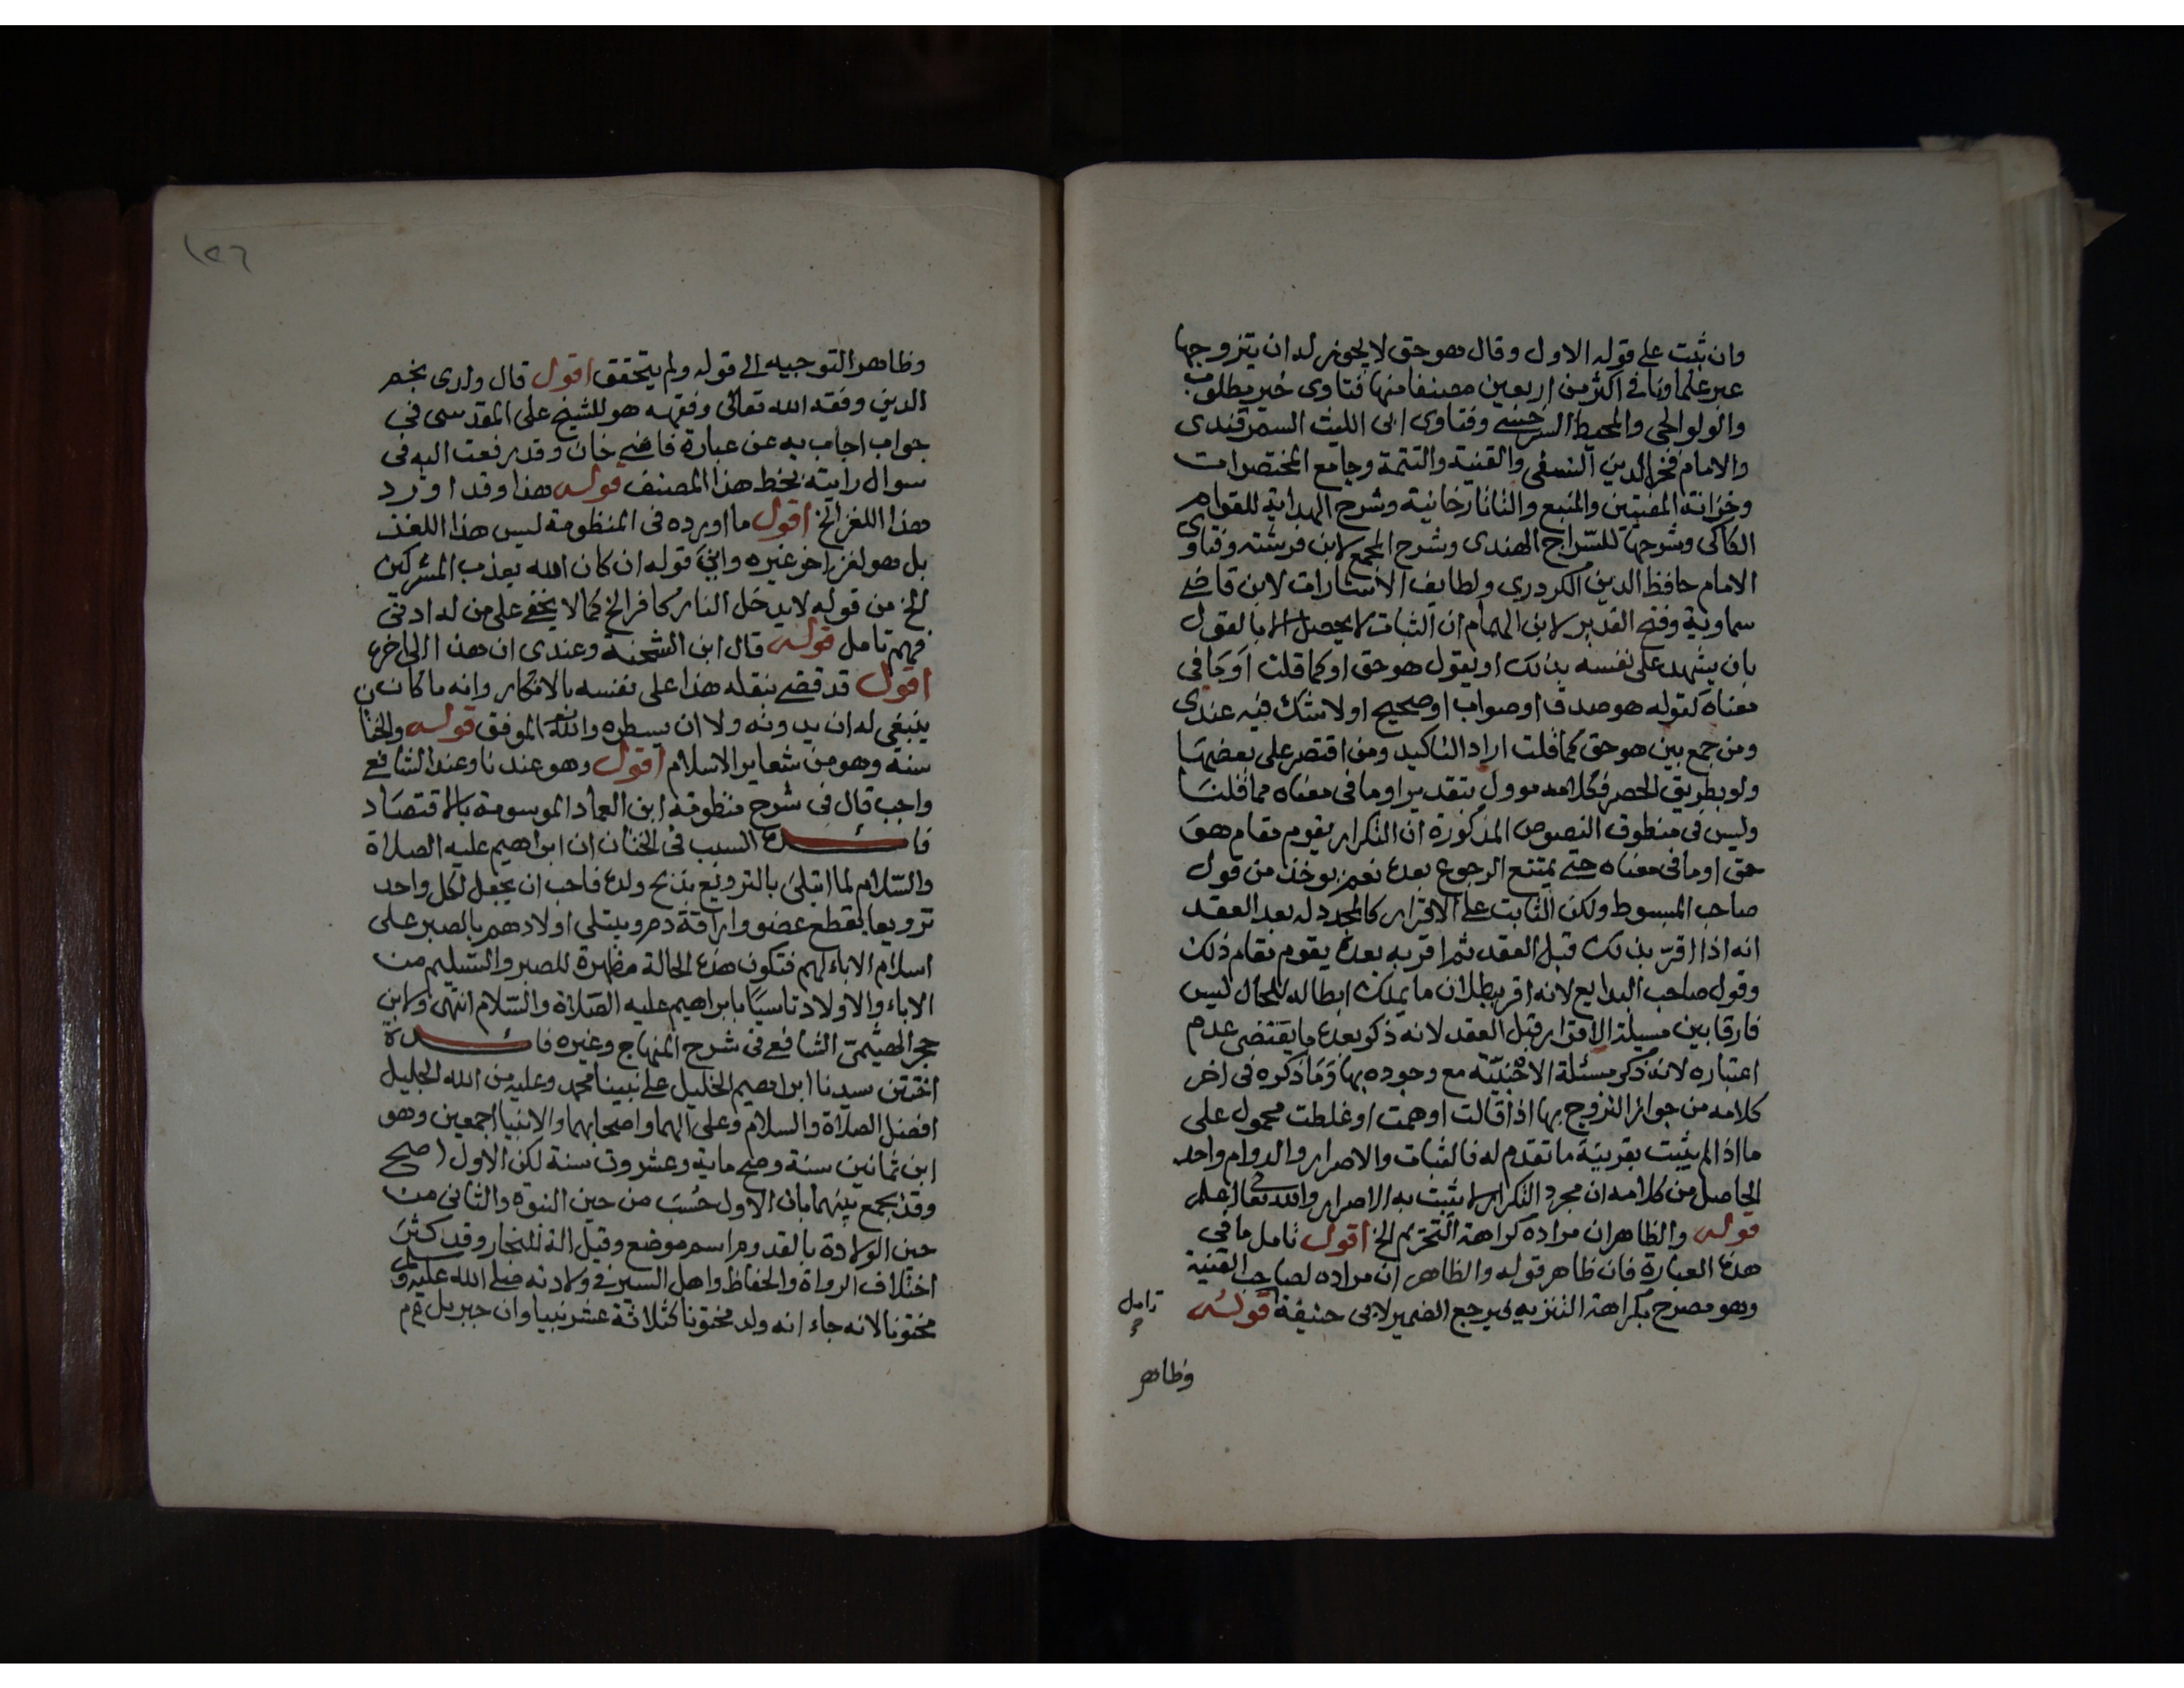 وان ثبت على قوله الاول وقال هو حق لا يجوز له ان يتزوجها
عبر علماونا في اكثر من اربعين مصنفا منها فتاوى خير مطلوب
والولوالجي والمحيط السرخسي وفتاوى ابى الليث السمرقندى
والامام فخر الدين النسفى والقنية والتتمة وجامع المختصرات
وخزانة المفتيين والمنبع والتاتارخانية وشرح الهداية للقوام
الكاكى وشرحها للسراج الهندى وشرح المجمع لابن فرشته وفتاوى
الامام حافظ الدين الكردري ولطايف الاشارات لابن قاضى
سماونة وفتح القدير لابن الهمام ان الثبات لا يحصل الا بالقول
بان يشهد على نفسه بذلك او يقول هو حق او كما قلت او جا في
معناه كقوله هو صدق او صواب او صحيح او لا شك فيه عندى
ومن جمع بين هو حق كما قلت اراد التاكيد ومن اقتصر على بعضها
ولو بطريق الحصر فكلامه موول بتقدير او ما فى معناه مما قلنا
وليس فى منطوق النصوص المذكورة ان التكرار يقوم مقام هو
حق او ما فى معناه حتى يمتنع الرجوع بعده نعم يوخذ من قول
صاحب المبسوط ولكن الثابت على الاقرار كالمجدد له بعد العقد
انه اذا اقر بذلك قبل العقد ثم اقر به بعده يقوم مقام ذلك
وقول صاحب البدايع لانه اقر ببطلان ما يملك ابطاله للحال ليس
فارقا بين مسيلة الاقرار قبل العقد لانه ذكر بعده ما يقتضى عدم
اعتباره لانه ذكر مسئلة الاجنبية مع وجوده بها وما ذكره فى اخر
كلامه من جواز التزوج بها اذا قالت اوهمت او غلطت محمول على
ما اذا لم يثبت بقرينة ما تقدم له فالثبات والاصرار والدوام واحد
الحاصل من كلامه ان مجرد التكرار لا يثبت به الاصرار والله تعالى اعلم
قوله والظاهر ان مراده كراهة التحريم الخ اقول تامل ما في
هذه العبارة فان ظاهر قوله والظاهر ان مراده لصاحب القنية
وهو مصرح بكراهة التنزيه فيرجع الضمير لابى حنيفة قوله
تامل
وظاهر
١٢٦
وظاهر التوجيه الى قوله ولم يتحقق اقول قال ولدى نجم
الدين وفقه الله تعالى وفقهه هو للشيخ على المقدسى فى
جواب اجاب به عن عبارة قاضى خان وقد رفعت اليه فى
سوال رايته بخط هذا المصنف قوله هذا وقد اورد
هذا اللغز الخ اقول ما اورده فى المنظومة ليس هذا اللغز
بل هو لغز اخر غيره واين قوله ان كان الله يعذب المشركين
الخ من قوله لا يدخل النار كافر الخ كما لا يخفى على من له ادنى
فهم تامل قوله قال ابن الشحنة وعندى ان هذا الى اخره
اقول قد قضى بنقله هذا على نفسه بالانكار وانه ما كان
ينبغي له ان يدونه ولا ان يسطره والله الموفق قوله والختا
سنة وهو من شعاير الاسلام اقول وهو عندنا وعند الشافعى
واجب قال فى شرح منظومة ابن العماد الموسومة بالاقتصاد
فائدة السبب فى الختان ان ابراهيم عليه الصلاة
والسلام لما ابتلى بالترويع بذبح ولده فاحب ان يجعل لكل واحد
ترويعا بقطع عضو واراقة دم ويبتلى اولادهم بالصبر على
اسلام الاباء لهم فتكون هذه الحالة مظهرة للصبر والتسليم من
الاباء والاولاد تاسيا بابراهيم عليه الصلاة والسلام انتهى ولابن
حجر الهيثمى الشافعى فى شرح المنهاج وغيره فائدة
اختتن سيدنا ابراهيم الخليل على نبينا محمد وعليه من الله الجليل
افضل الصلاة والسلام وعلى الهما واصحابهما والانبيا اجمعين وهو
ابن ثمانين سنة وصح ماية وعشرون سنة لكن الاول اصح
وقد يجمع بينهما بان الاول حسب من حين النبوة والثانى من
حين الولادة بالقدوم اسم موضع وقيل الة للنجار وقد كثر
اختلاف الرواة والحفاظ واهل السير فى ولادته صلى الله عليه وسلم
مختونا لانه جاء انه ولد مختونا كثلاثة عشر نبيا وان جبريل